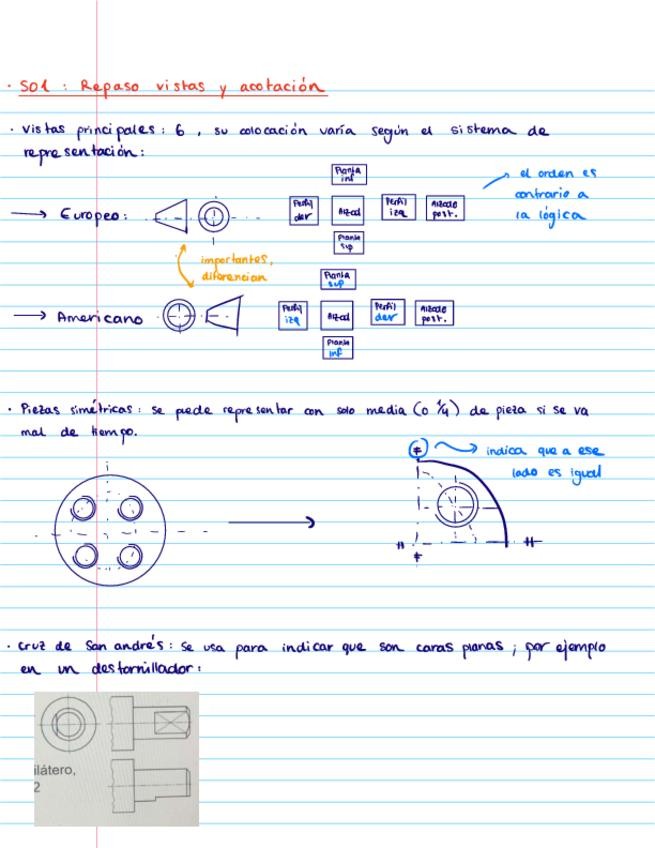 · S01 : Repaso vistas y acotación
· Vistas principales : 6 , su colocación varía según el sistema de
representación :
Planta inf
→ Europeo :
Perfil der
Alzad
Perfil izq
Alzado post.
Planta sup
el orden es
contrario a
la lógica
importantes,
diferencian
Planta sup
→ Americano
Perfil izq
Alzad
Perfil der
Alzado post.
Planta inf
· Piezas simétricas : se puede representar con solo media (o 1/4) de pieza si se va
mal de tiempo.
indica que a ese
lado es igual
· Cruz de San andrés : se usa para indicar que son caras planas ; por ejemplo
en un destornillador :
ilátero,
2